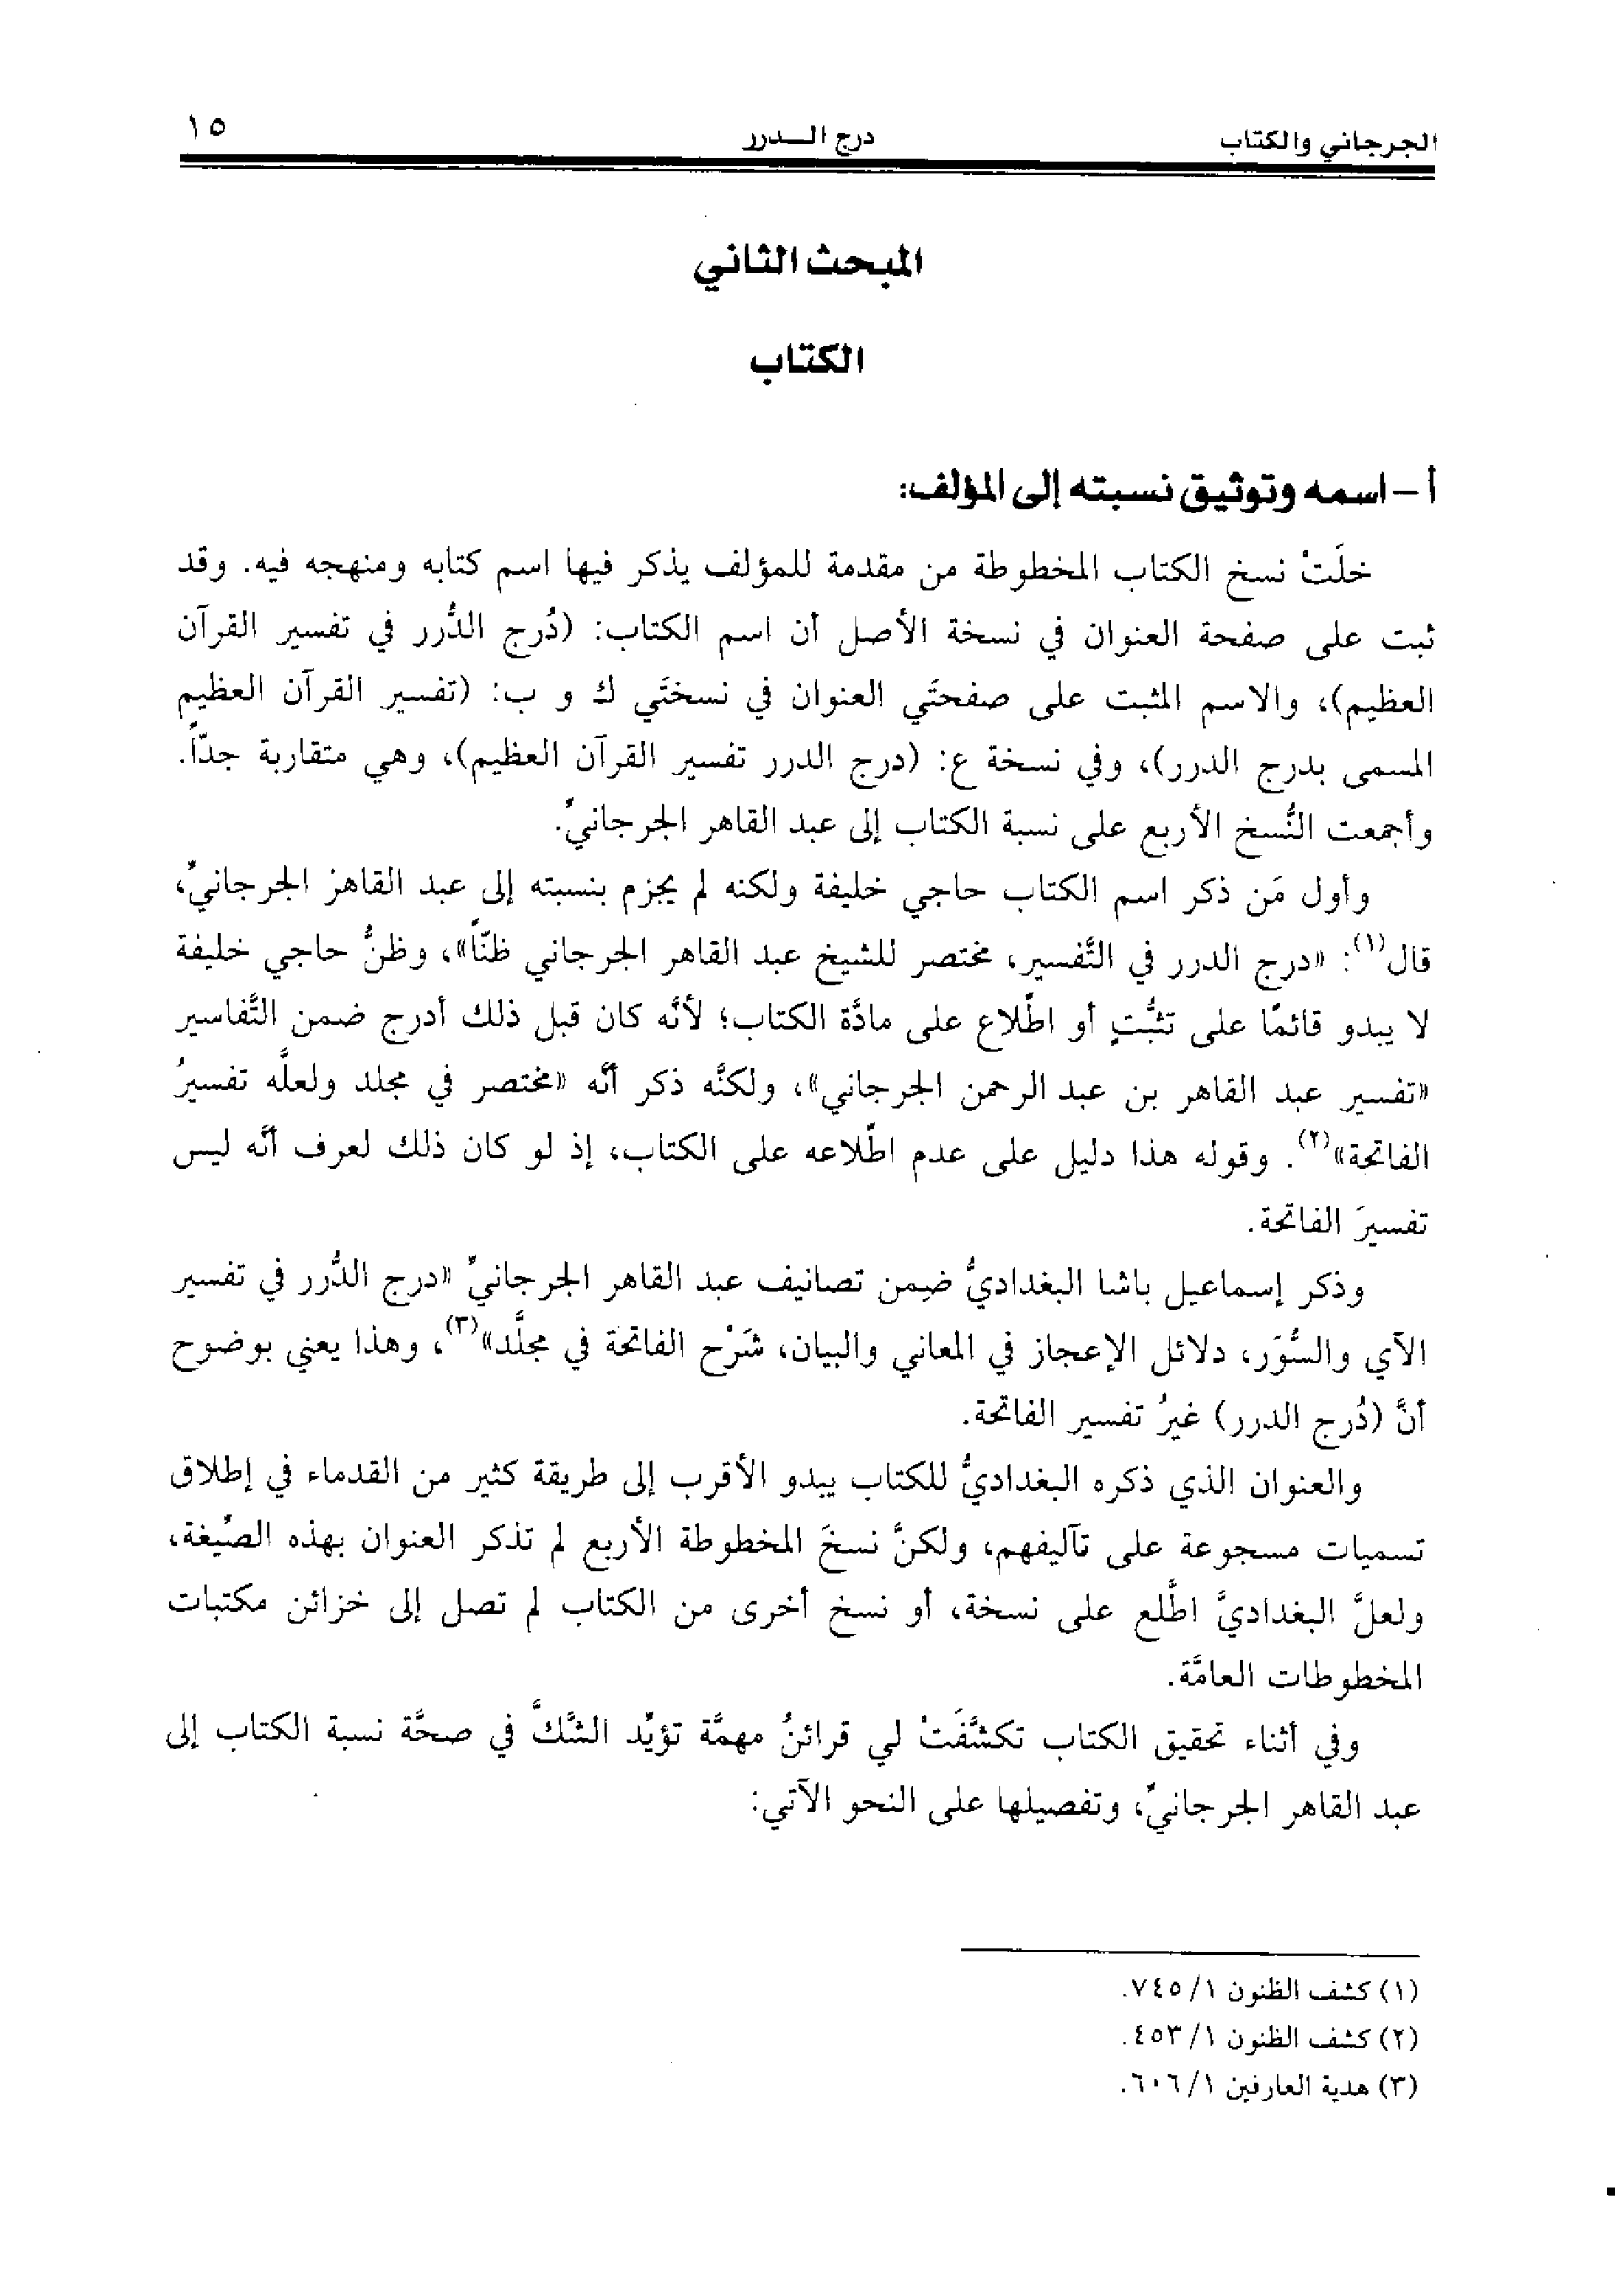 الجرجاني والكتاب درج الـــدرر ١٥
المبحث الثاني
الكتاب
أ - اسمه وتوثيق نسبته إلى المؤلف:
خلَتْ نسخ الكتاب المخطوطة من مقدمة للمؤلف يذكر فيها اسم كتابه ومنهجه فيه. وقد
ثبت على صفحة العنوان في نسخة الأصل أن اسم الكتاب: (دُرج الدُّرر في تفسير القرآن
العظيم)، والاسم المثبت على صفحتَي العنوان في نسختَي ك و ب: (تفسير القرآن العظيم
المسمى بدرج الدرر)، وفي نسخة ع: (درج الدرر تفسير القرآن العظيم)، وهي متقاربة جدّاً.
وأجمعت النُّسخ الأربع على نسبة الكتاب إلى عبد القاهر الجرجانيّ.
وأول مَن ذكر اسم الكتاب حاجي خليفة ولكنه لم يجزم بنسبته إلى عبد القاهر الجرجانيّ،
قال(١): «درج الدرر في التَّفسير، مختصر للشيخ عبد القاهر الجرجاني ظنّاً»، وظنُّ حاجي خليفة
لا يبدو قائمًا على تثبُّتٍ أو اطّلاع على مادَّة الكتاب؛ لأنَّه كان قبل ذلك أدرج ضمن التَّفاسير
«تفسير عبد القاهر بن عبد الرحمن الجرجاني»، ولكنَّه ذكر أنَّه «مختصر في مجلد ولعلَّه تفسيرُ
الفاتحة»(٢). وقوله هذا دليل على عدم اطّلاعه على الكتاب، إذ لو كان ذلك لعرف أنَّه ليس
تفسيرَ الفاتحة.
وذكر إسماعيل باشا البغداديُّ ضمن تصانيف عبد القاهر الجرجانيّ «درج الدُّرر في تفسير
الآي والسُّوَر، دلائل الإعجاز في المعاني والبيان، شَرْح الفاتحة في مجلَّد»(٣)، وهذا يعني بوضوح
أنَّ (دُرج الدرر) غيرُ تفسير الفاتحة.
والعنوان الذي ذكره البغداديُّ للكتاب يبدو الأقرب إلى طريقة كثير من القدماء في إطلاق
تسميات مسجوعة على تآليفهم، ولكنَّ نسخَ المخطوطة الأربع لم تذكر العنوان بهذه الصِّيغة،
ولعلَّ البغداديَّ اطَّلع على نسخة، أو نسخ أخرى من الكتاب لم تصل إلى خزائن مكتبات
المخطوطات العامَّة.
وفي أثناء تحقيق الكتاب تكشَّفَتْ لي قرائنُ مهمَّة تؤيِّد الشَّكَّ في صحَّة نسبة الكتاب إلى
عبد القاهر الجرجانيّ، وتفصيلها على النحو الآتي:
(١) كشف الظنون ١/ ٧٤٥.
(٢) كشف الظنون ١/ ٤٥٣.
(٣) هدية العارفين ١/ ٦٠٦.